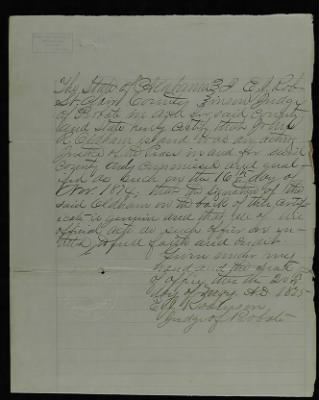 The State of Alabama } I E. J. Rob-
St. Clair County } inson Judge
of Probate in and for said County
and State hereby Certify that
R. Oldham is and was an acting
Justice of the Peace in and for said
County duly Commissioned and
as such on the 16th day of
Nov. 1874, that the signature of the
said Oldham on the back of this certifi
cate is genuine and that all of his
official acts as such officer are en-
titled to full faith and credit.
Given under my
hand and the seal
of office this the
day of A.D. 1875
E. J. Robinson
Judge of Probate